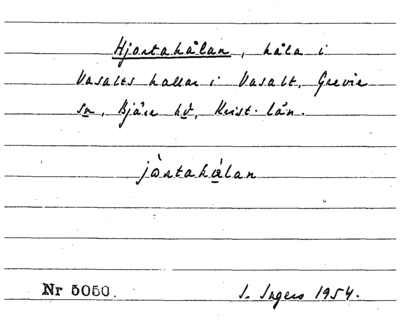 Hjortahålan, håla i
Vasalts hallar i Vasalt, Grevie
sn, Bjäre hd, Krist. län.
jòrtahålan
Nr 5050.
I. Ingers 1954.